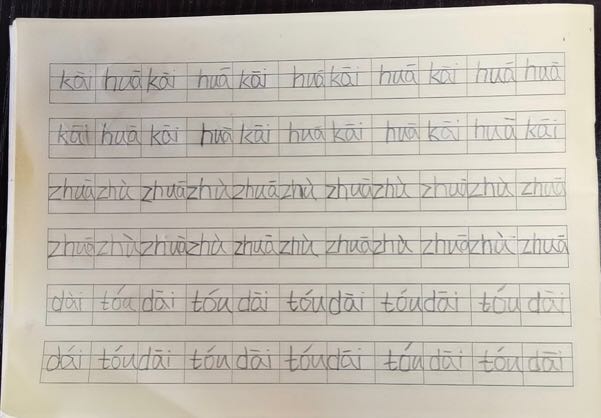 kāi huā kāi huā kāi huā kāi huā kāi huā huā
kāi huā kāi huā kāi huā kāi huā kāi huā kāi
zhuā zhù zhuā zhù zhuā zhù zhuā zhù zhuā zhù zhuā
zhuā zhù zhuā zhù zhuā zhù zhuā zhù zhuā zhù zhuā
dài tóu dāi tóu dāi tóu dāi tóu dāi tóu dāi
dái tóu dāi tóu dāi tóu dāi tóu dāi tóu dāi